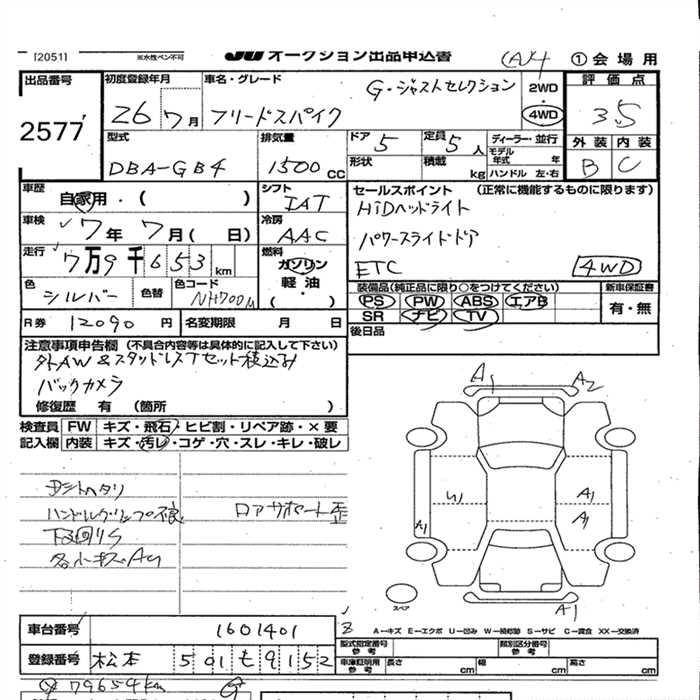 [2051] ※水性ペン不可 JU オークション出品申込書 (A)4 ①会場用
出品番号 2577
初度登録年月 26 7月
車名・グレード G・ジャストセレクション フリードスパイク
2WD・4WD
評価点 3.5
型式 DBA-GB4
排気量 1500 CC
ドア 5 定員 5人
形状 積載 kg
ディーラー・並行
モデル年式 年
ハンドル 左・右
外装 内装
B C
車歴 自家用・( )
シフト IAT
セールスポイント (正常に機能するものに限ります)
HiDヘッドライト
パワースライドドア
ETC 4WD
車検 7年 7月( 日)
冷房 AAC
走行 7万9千653km
燃料 ガソリン 軽油 ・( )
色 シルバー 色替 色コード NH700M
装備品(純正品に限り○をつけてください) 新車保証書
PS PW ABS エアB 有・無
SR ナビ TV
R券 12090円 名変期限 月 日
後日品
注意事項申告欄 (不具合内容等は具体的に記入して下さい)
外AW&スタッドレスTセット積込み
バックカメラ
修復歴 有 (箇所 )
検査員 FW キズ・飛石・ヒビ割・リペア跡・×要
記入欄 内装 キズ・汚レ・コゲ・穴・スレ・キレ・破レ
Dシートヘタリ
ハンドルグリップ不良 ロアサポート歪
下回りS
各小キズAU
A1 A2
A1
A1
A1
スペア A1
車台番号 1601401
A－キズ E－エクボ U－凹み W－補修跡 S－サビ C－腐食 XX－交換済
型式指定番号 参考 類別区分番号 参考
登録番号 松本 501 も 9152
車庫証明用 参考 長さ cm 幅 cm 高さ cm
79654km